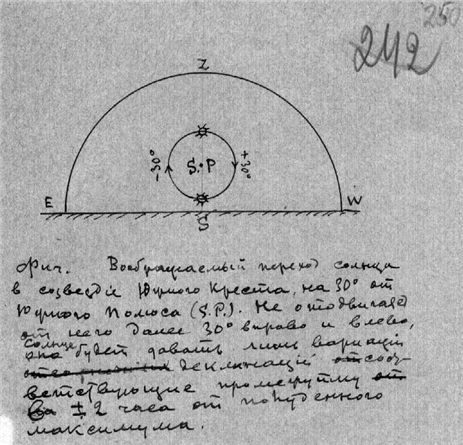 250
242
Z
-30°
S.P
+30°
E
W
S
Фиг. Воображаемый переход солнца
в созвездие Южного Креста, на 30° от
Южного Полюса (S.P.). Не отодвигаясь
от него далее 30° вправо и влево,
солнце будет давать лишь вариации
деклинаций соот-
ветствующие промежутку
± 2 часа от полуденного
максимума.